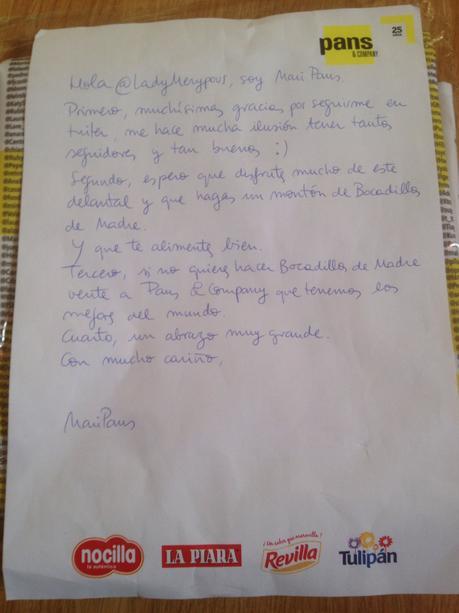 pans
& COMPANY
25
Hola @LadyMerypous, soy Mari Pans.
Primero, muchísimas gracias por seguirme en
tuiter, me hace mucha ilusión tener tantos
seguidores y tan buenos :)
Segundo, espero que disfrutes mucho de este
delantal y que hagas un montón de Bocadillos
de Madre.
Y que te alimentes bien.
Tercero, si no quieres hacer Bocadillos de Madre
vente a Pans & Company que tenemos los
mejores del mundo.
Cuarto, un abrazo muy grande.
Con mucho cariño,
Mari Pans
nocilla
la auténtica
LA PIARA
¡Un sabor que maravilla!
Revilla
Tulipán